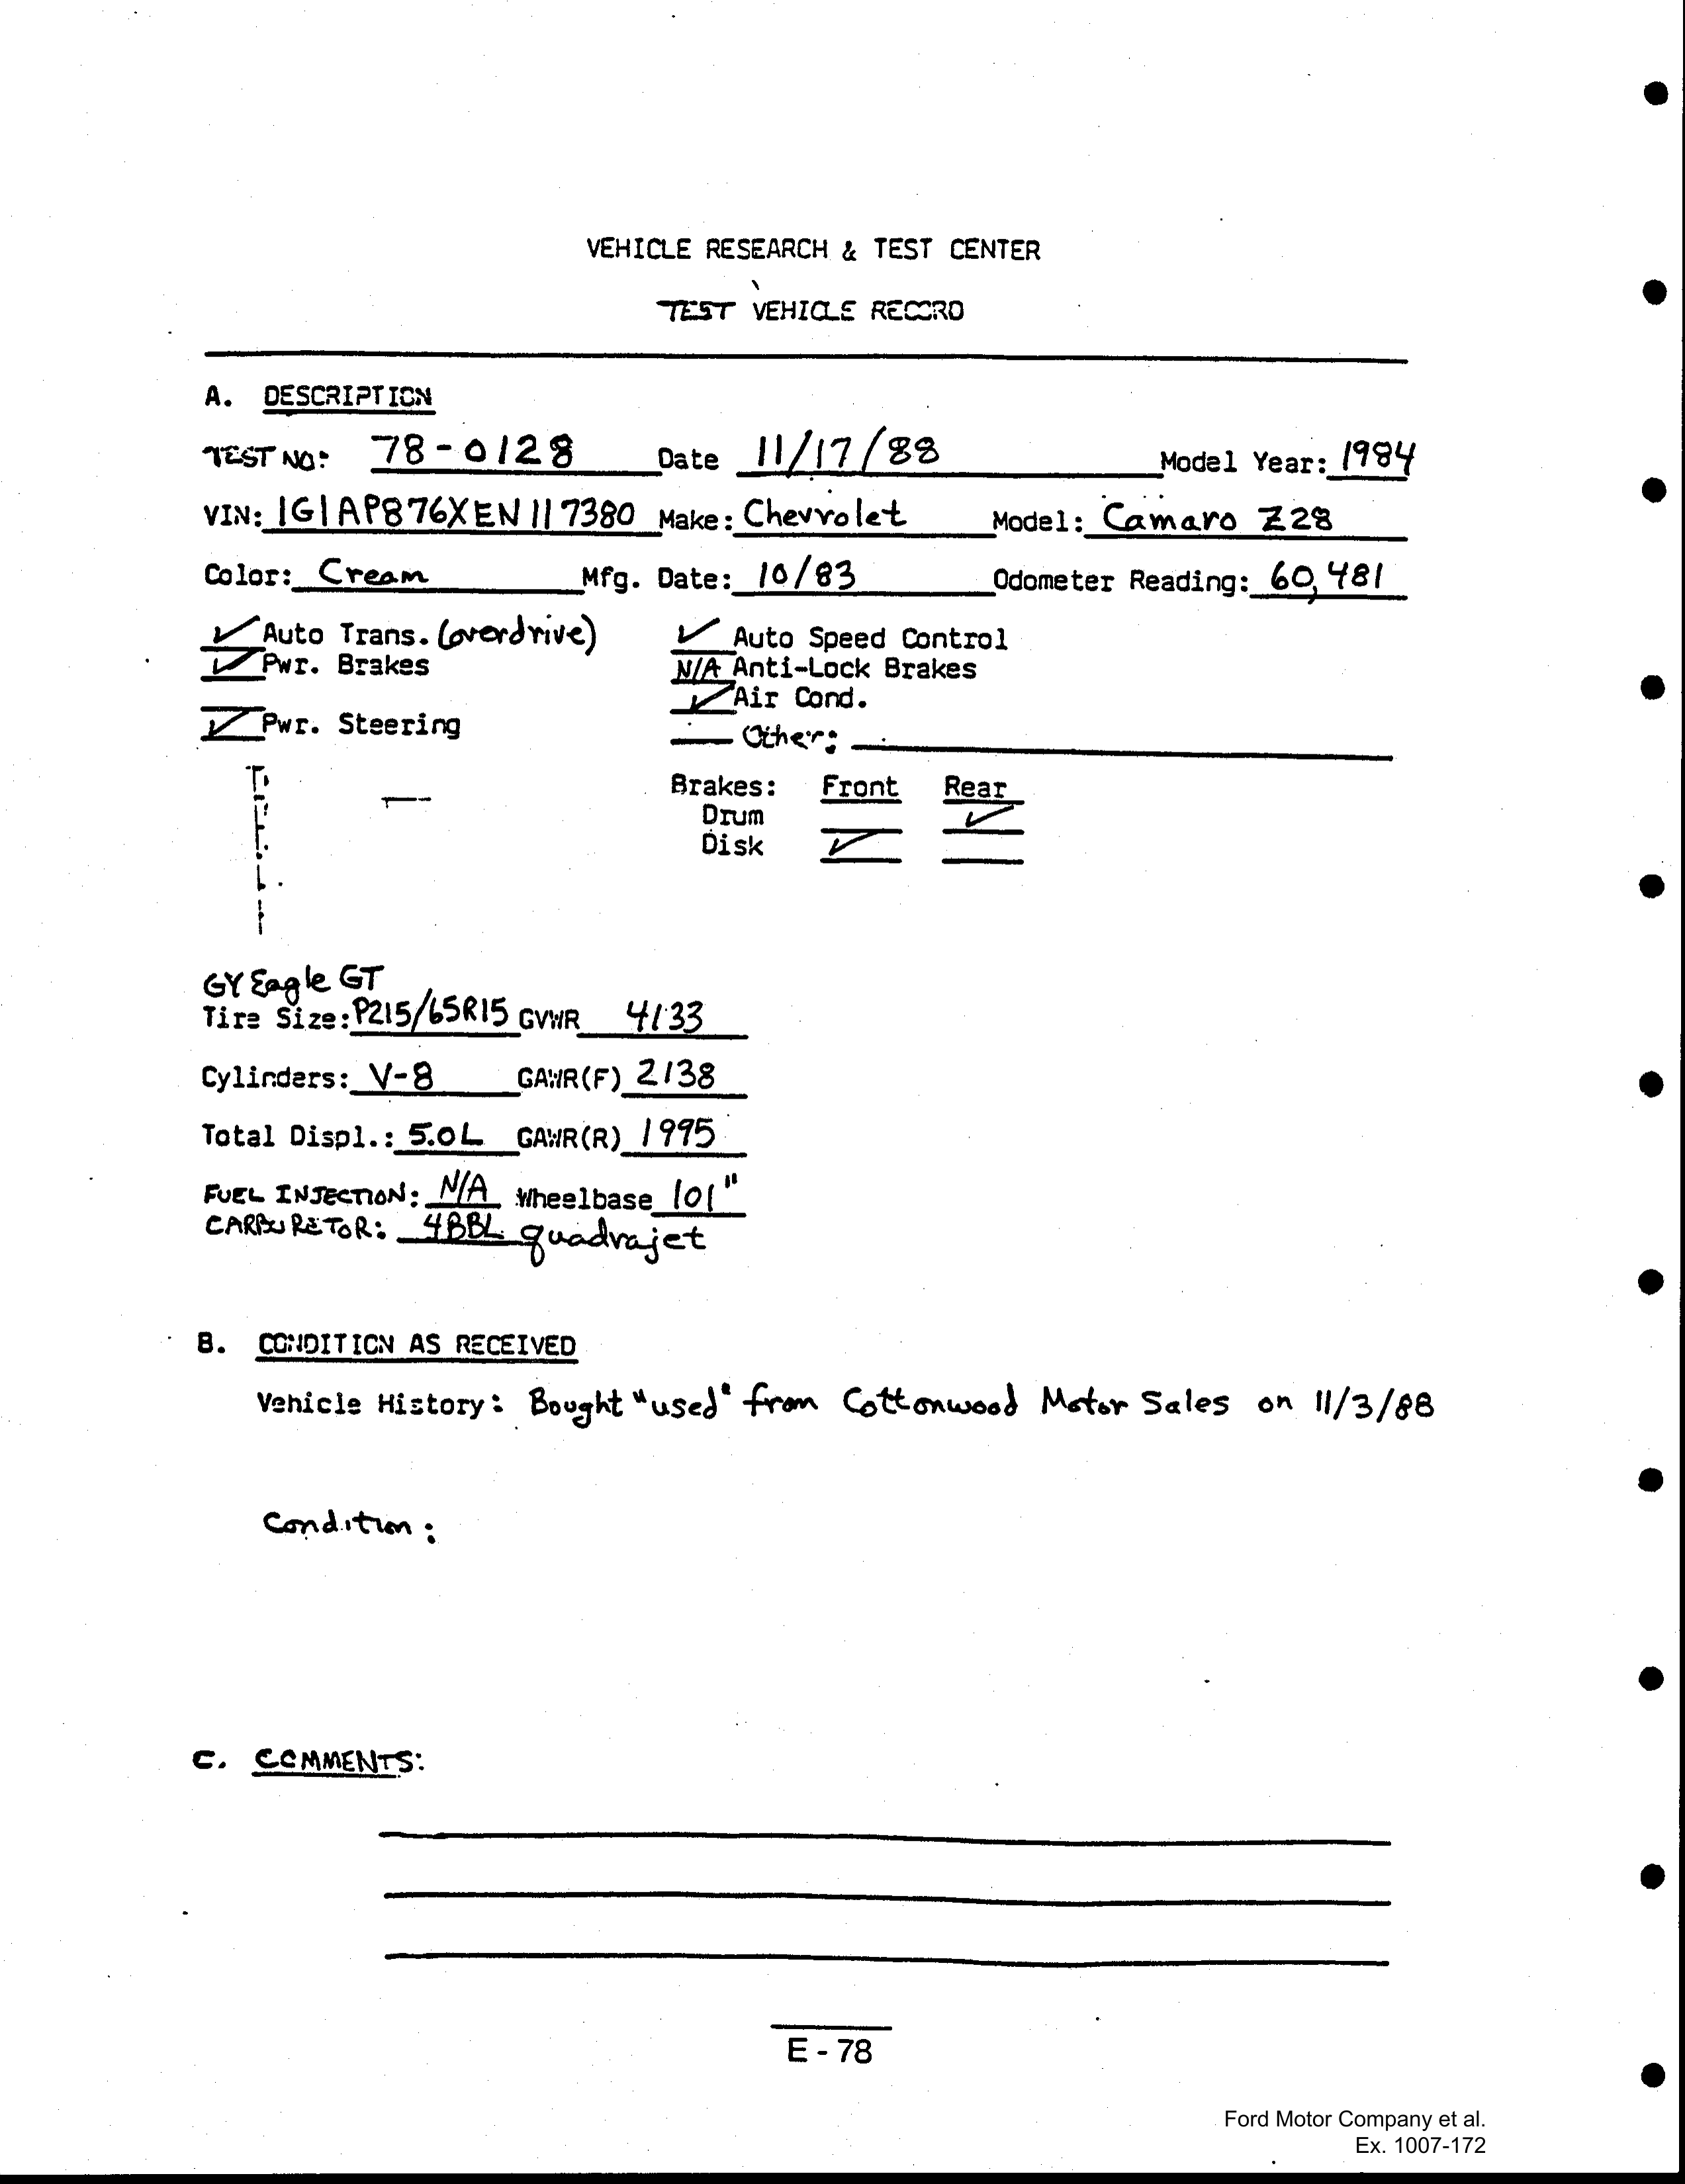 VEHICLE RESEARCH & TEST CENTER
TEST VEHICLE RECORD
A. DESCRIPTION
TEST NO: 78-0128 Date 11/17/88 Model Year: 1984
VIN: 1G1AP876XEN117380 Make: Chevrolet Model: Camaro Z28
Color: Cream Mfg. Date: 10/83 Odometer Reading: 60,481
✓ Auto Trans. (overdrive) ✓ Auto Speed Control
✓ Pwr. Brakes N/A Anti-Lock Brakes
✓ Air Cond.
✓ Pwr. Steering — Other:
Brakes: Front Rear
Drum ✓
Disk ✓
GY Eagle GT
Tire Size: P215/65R15 GVWR 4133
Cylinders: V-8 GAWR(F) 2138
Total Displ.: 5.0L GAWR(R) 1995
FUEL INJECTION: N/A Wheelbase 101"
CARBURETOR: 4BBL quadrajet
B. CONDITION AS RECEIVED
Vehicle History: Bought "used" from Cottonwood Motor Sales on 11/3/88
Condition:
C. COMMENTS:
E - 78
Ford Motor Company et al.
Ex. 1007-172